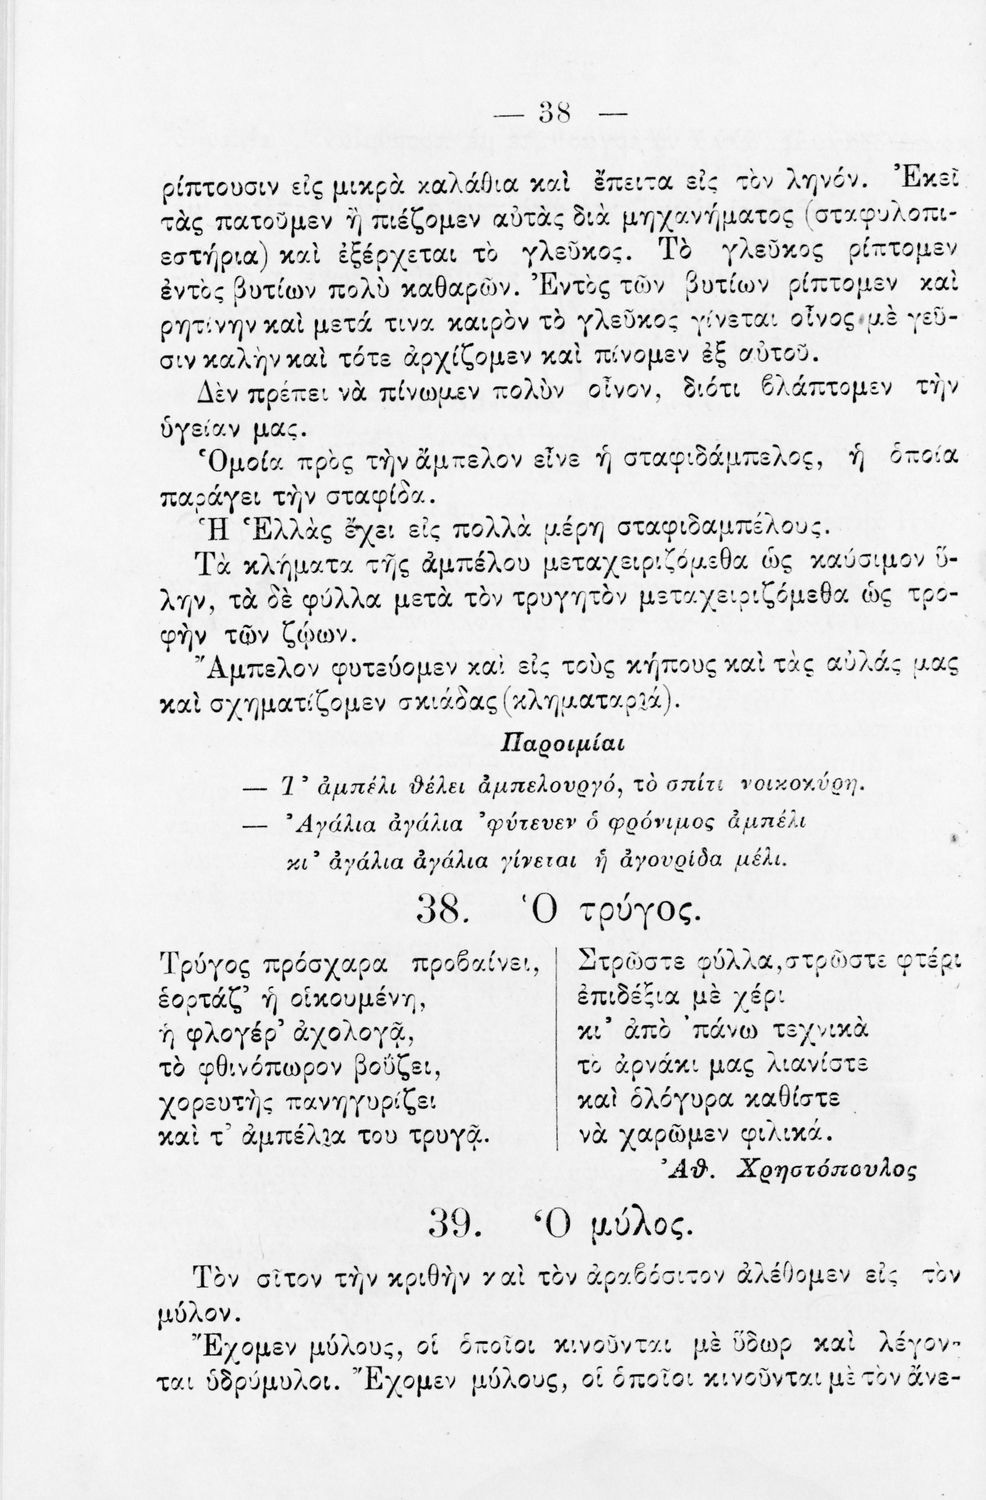 — 38 —
ρίπτουσιν εἰς μικρὰ καλάθια καὶ ἔπειτα εἰς τὸν ληνόν. Ἐκεῖ
τὰς πατοῦμεν ἢ πιέζομεν αὐτὰς διὰ μηχανήματος (σταφυλοπι-
εστήρια) καὶ ἐξέρχεται τὸ γλεῦκος. Τὸ γλεῦκος ρίπτομεν
ἐντὸς βυτίων πολὺ καθαρῶν. Ἐντὸς τῶν βυτίων ρίπτομεν καὶ
ρητίνην καὶ μετά τινα καιρὸν τὸ γλεῦκος γίνεται οἶνος μὲ γεῦ-
σιν καλὴν καὶ τότε ἀρχίζομεν καὶ πίνομεν ἐξ αὐτοῦ.
Δὲν πρέπει νὰ πίνωμεν πολὺν οἶνον, διότι βλάπτομεν τὴν
ὑγείαν μας.
Ὁμοία πρὸς τὴν ἄμπελον εἶνε ἡ σταφιδάμπελος, ἡ ὁποία
παράγει τὴν σταφίδα.
Ἡ Ἑλλὰς ἔχει εἰς πολλὰ μέρη σταφιδαμπέλους.
Τὰ κλήματα τῆς ἀμπέλου μεταχειριζόμεθα ὡς καύσιμον ὕ-
λην, τὰ δὲ φύλλα μετὰ τὸν τρυγητὸν μεταχειριζόμεθα ὡς τρο-
φὴν τῶν ζῴων.
Ἄμπελον φυτεύομεν καὶ εἰς τοὺς κήπους καὶ τὰς αὐλάς μας
καὶ σχηματίζομεν σκιάδας (κληματαριά).
Παροιμίαι
— Τ' ἀμπέλι θέλει ἀμπελουργό, τὸ σπίτι νοικοκύρη.
— Ἀγάλια ἀγάλια 'φύτευεν ὁ φρόνιμος ἀμπέλι
κι' ἀγάλια ἀγάλια γίνεται ἡ ἀγουρίδα μέλι.
38. Ὁ τρύγος.
Τρύγος πρόσχαρα προβαίνει,
ἑορτάζ' ἡ οἰκουμένη,
ἡ φλογέρ' ἀχολογᾷ,
τὸ φθινόπωρον βοΰζει,
χορευτὴς πανηγυρίζει
καὶ τ' ἀμπέλια του τρυγᾷ.
Στρῶστε φύλλα, στρῶστε φτέρι
ἐπιδέξια μὲ χέρι
κι' ἀπὸ 'πάνω τεχνικὰ
τὸ ἀρνάκι μας λιανίστε
καὶ ὁλόγυρα καθίστε
νὰ χαρῶμεν φιλικά.
Ἀθ. Χρηστόπουλος
39. Ὁ μύλος.
Τὸν σῖτον τὴν κριθὴν καὶ τὸν ἀραβόσιτον ἀλέθομεν εἰς τὸν
μύλον.
Ἔχομεν μύλους, οἱ ὁποῖοι κινοῦνται μὲ ὕδωρ καὶ λέγον-
ται ὑδρύμυλοι. Ἔχομεν μύλους, οἱ ὁποῖοι κινοῦνται μὲ τὸν ἄνε-